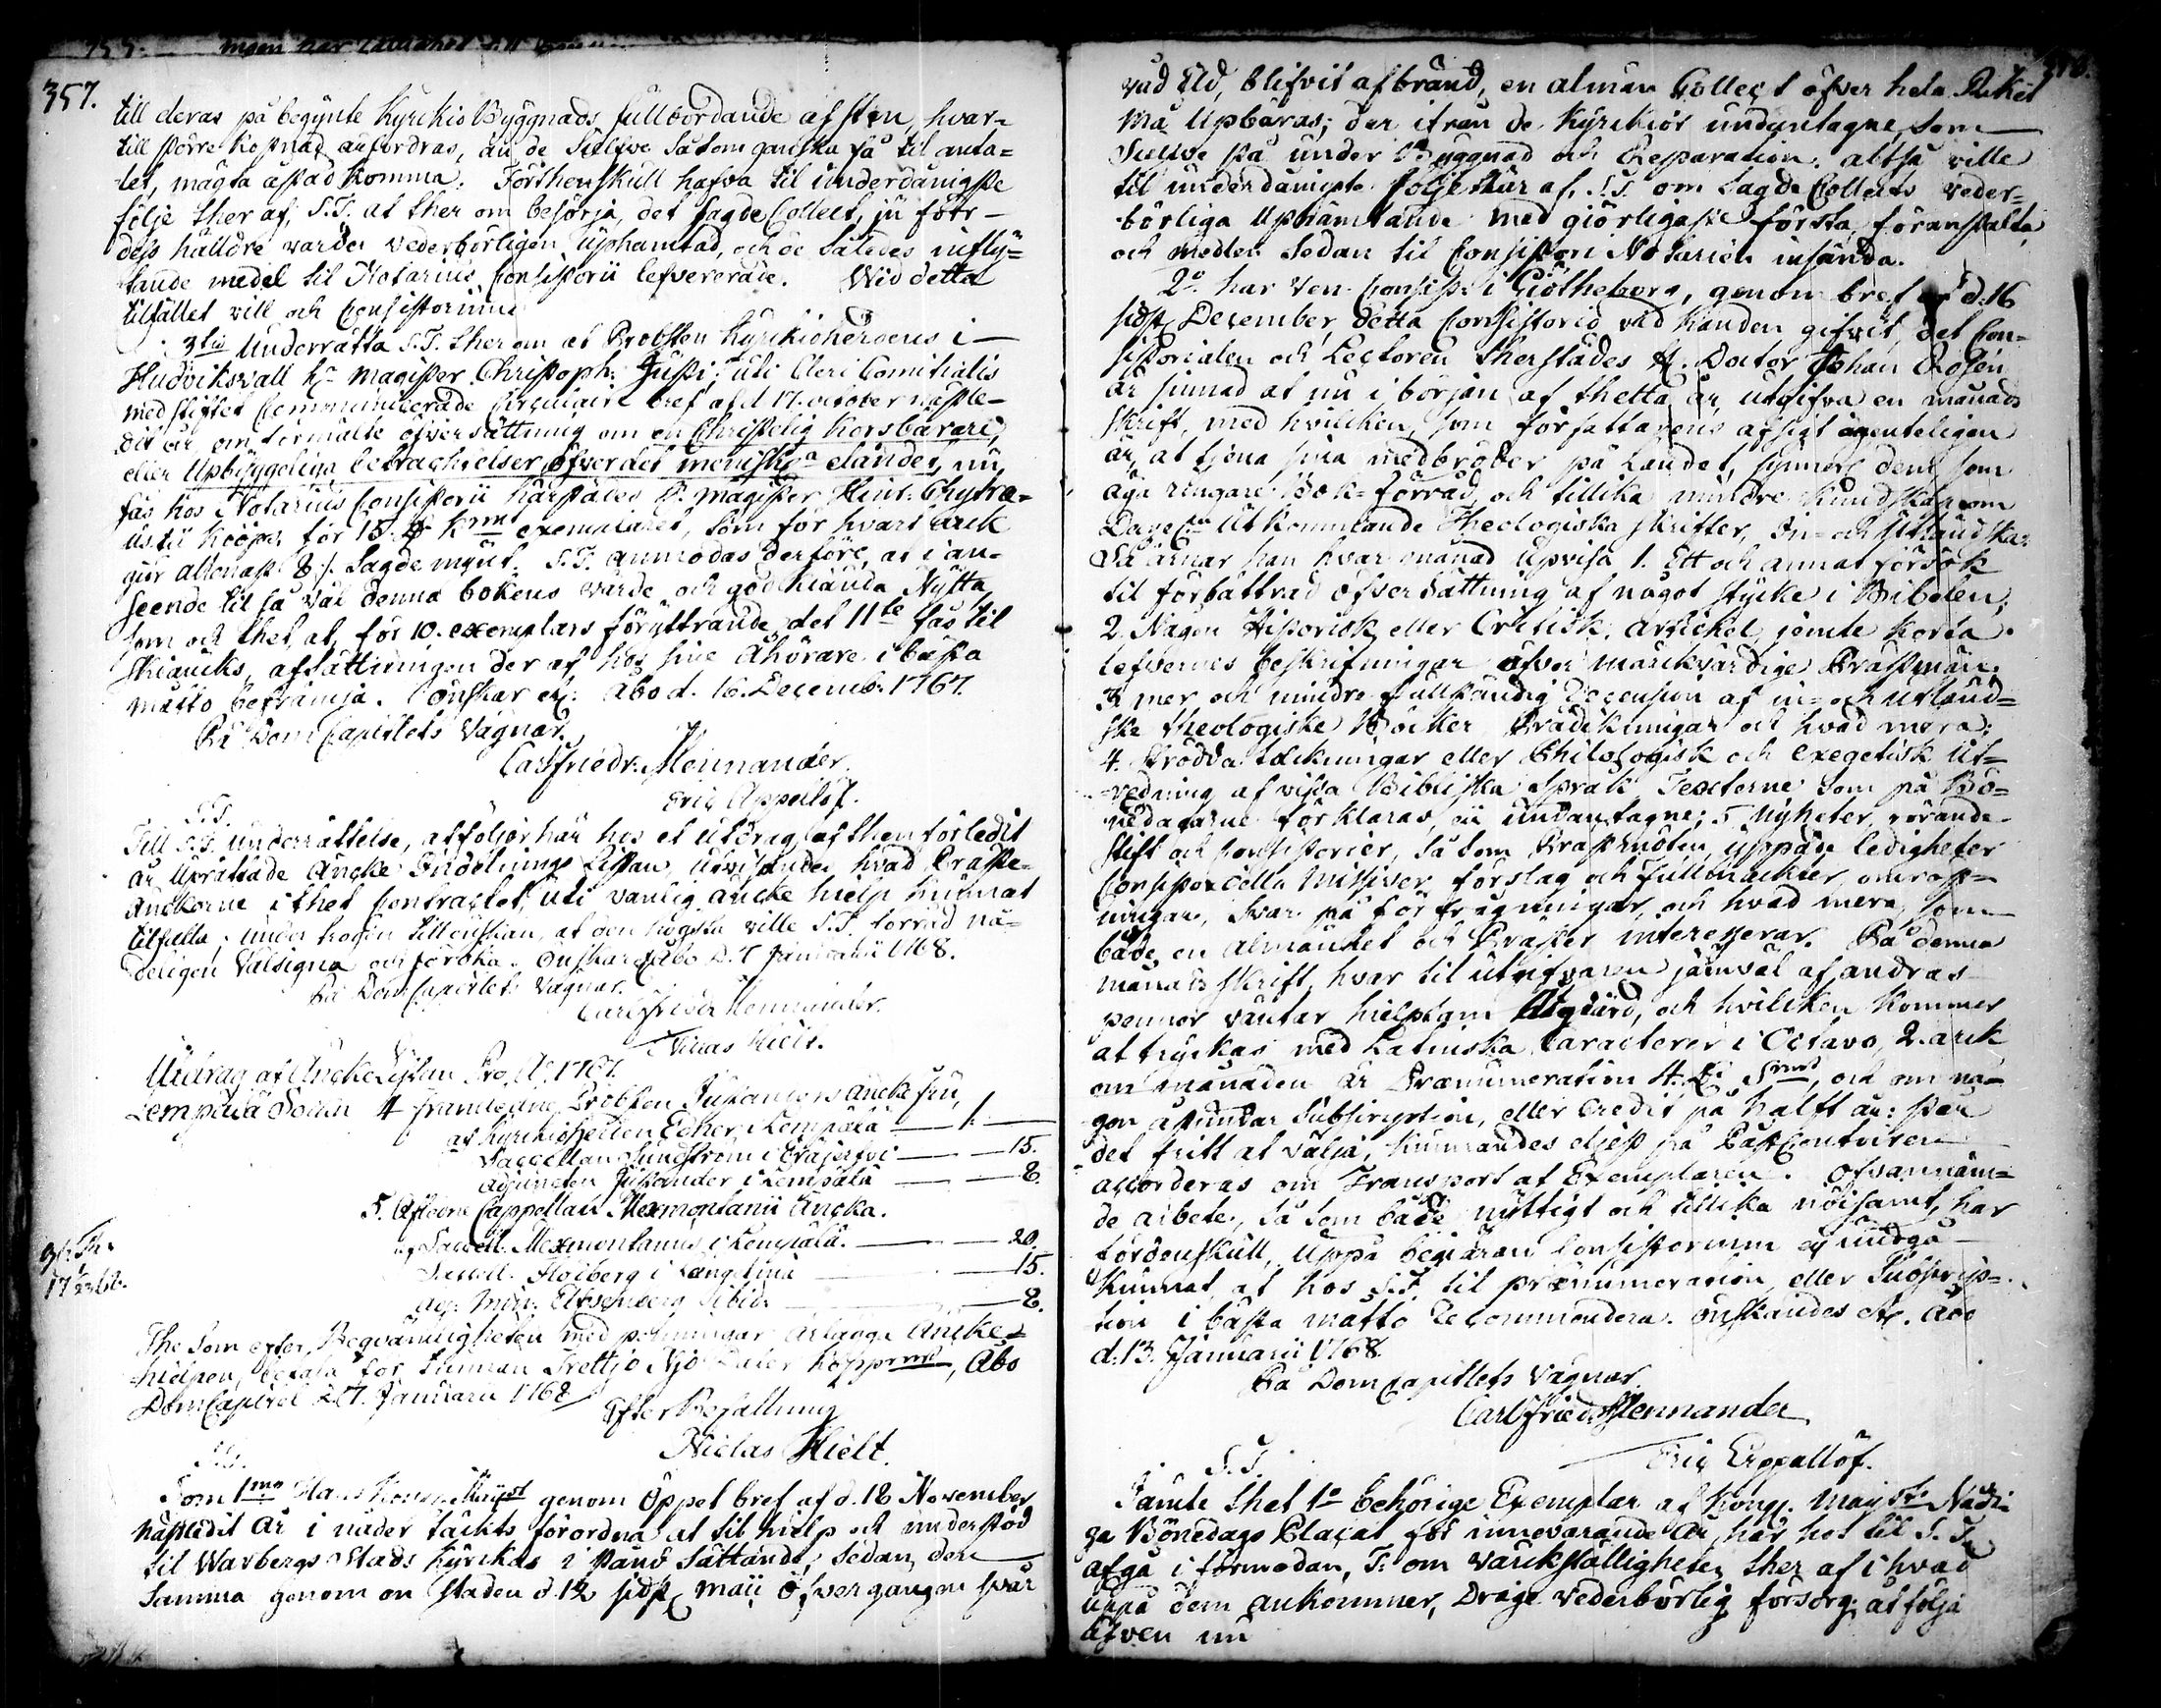 357.
till deras på begynte Kyrckio Byggnads fullbordande af sten, hvar-
till större kostnad anfordras, än de Sielfve Såsom ganska få til anta-
let, mägta åstad komma. Förthenskull hafva til underdånigste
följe ther af, S.T. at ther om besörja, det sagde Collect, ju förr-
dess hälldre varder vederbörligen uphämtad, och de Således influ-
tande medel til Notarius Consistorii lefvererade. Wid detta
tilfället vill och Consistorium
3tio Underrätta S.T. ther om at Probsten Kyrkioherdens i
Hudviksvall Hr Magister Christoph: uti Cleri Comitialis
med stiftet Communicerade Circulaire bref af d 17. october nästle-
dit år om förmälte öfversättning om en Christelig Korsbärare,
eller Upbyggeliga betrachtelser öfver det menniskl:a eländet, nu,
fås hos Notarius Consistorii härstädes Hr Magister Chytræ-
us til kiöps för 15. Kmt exemplaret, som för hvart arck
giör allenast 8 Sagde mynt. S.T. anmodas derföre, at i an-
seende til så väl denna bokens värde och godkiända Nytta,
som och thet, at för 10. exemplars föryttrande, det 11te fås til
Skiäncks, afsättningen der af hos sine Åhörare i bästa
måtto befrämja. Önskar etc. Åbo d. 16. Decemb. 1767.
På DomCapitlets Vägnar.
Carl Friedr: Mennander.
Eric Appellöf.
S.T.
Till S.T. underrättelse, at följer här hos et utdrag af then förledit
år Uprättade Äncke Indelnings Listan, utvisande hvad Präste-
Änckorne i thet Contractet, uti vanlig äncke hielp kunnat
tilfalla; under trogen tillönskan, at den högsta ville S.T. förråd nå-
deligen Välsigna och föröka. Önskar etc Åbo d. 7 Januarii 1768.
På Dom Capitlets Vägnar.
Carl Fridr Mennander.
Niclas Hielt.
Utdrag af Äncke Listan Pro Ao 1767.
Lempälä Socken 4 framledne Probsten Änckefru,
af Kyrkioherden Lempälä 1.
Sacellan Sundström i 15.
Adjuncten i Lempälä 8.
5. Afledne Cappellan Mexmontanii Äncka.
af Sacell. Mexmontanus i Lempälä. 20.
Sacell. Floberg i Längelmä 15.
Adj. Min. ibid. 8.
The som efter Beqvämligheten med påminnar erlägga Äncke-
hielpen, betala för Trettjo Daler kopp:rmt, Åbo
DomCapitel d 7. Januarii 1768
Efter Befallning
Niclas Hielt.
S.T.
Som 1mo Hans Kongl. Mayst genom Öppet bref af d. 18 November
näst ledit år i nåder täckts förordna at til hielp och understöd
til Warbergs Stads Kyrkas i stånd Sättande, sedan den
Samma genom en Staden d. 12 sidst: Maii öfvergången svår
våd Eld, blifvit afbränd, en almän Collect öfver hela Riket
må Upbäras; der ifrån de Kyrckior undantagne som
Sielfve stå under Byggnad och Reparation. altså ville
til underdånigste följe här af, S.T. om Sagde Collects veder-
börliga Uphämtande med giörligaste första, föranstalta,
och medlen Sedan til Consistorii Notarien insända.
2o har Ven. Consist: i Giötheborg, genom bref af d. 16
sidst: December, detta Consistorio vid handen gifvit, det Con-
sistorialen och Lectoren therstädes H. Doctor Johan Rosén
är sinnad at nu i början af thetta år, utgifva en månads
skrift, med hvilcken, som författarens afsigt ägenteligen
är, at tjena sina medbröder på Landet, synnerl dem som
äga ringare Bok-förråd, och tillika mindre Kundskap om
Dagel:n Utkommande Theologiska skrifter, In- och Utländska:
Så ärnar han hvar månad Upvisa 1. Ett och annat försök
til förbättrad öfversättning af något stycke i Bibelen;
2. Någon Historisk, eller Critisk, artickel, jemte korta
lefvernes beskrifningar öfver märckvärdige Prästmän.
3 mer och mindre fullständig Recension af in- och utländ-
ske theologiske Böcker Prädikningar och hvad mera;
4. Strödda täckningar eller Philologisk och exegetisk ut-
redning af vissa Bibliska Språk Texterne som på Bö-
nedagarne förklaras, ei undantagne; 5 Nyheter, rörande
Stift och Consistorier, så som Prästmöten, yppade ledigheter
Consistorielle Missiver, förslag och fullmackter, omrös-
ningar, Svar på förfrågningar, och hvad mera, som
både en almänhet och Präster interesserar. På denna
månads skrift, hvar til utgifvaren jämväl af andras
pennor väntar hielpsam Åtgiärd, och hvilcken kommer
at tryckas med Latinska Caracterer i Octavo, 2. arck
om månaden är Prænumeration 4. Smt, och om nå-
gon åstundar Subscription, eller Credit på halft år: står
det fritt at välja, kunnandes eljest på PostContoiren
accorderas om Transport af Exemplaren. Ofvannäm-
de arbete, så som både nyttigt och tillika nöisamt, har
fördenskull, Uppå begiäran Consistorium ej undgå
kunnat, at hos S.T. til prænumeration, eller Subscrip-
tion i bästa måtto Recommendera. Önskandes etc. Åbo
d: 13. Januarii 1768.
På Domcapitlets Vägnar.
Carl Fried Mennander
Eric Appellöf.
S.T.
Jämte thet 1o behörige Exemplar af Kongl. Mayst: Nådi-
ga Bönedags Placat för innevarande år, här hos til S.T.
afgå i förmodan, T. om värckstälfligheten ther af i hvad
uppå dem ankommer, Drage vederbörlig försorg; at följa
äfven nu